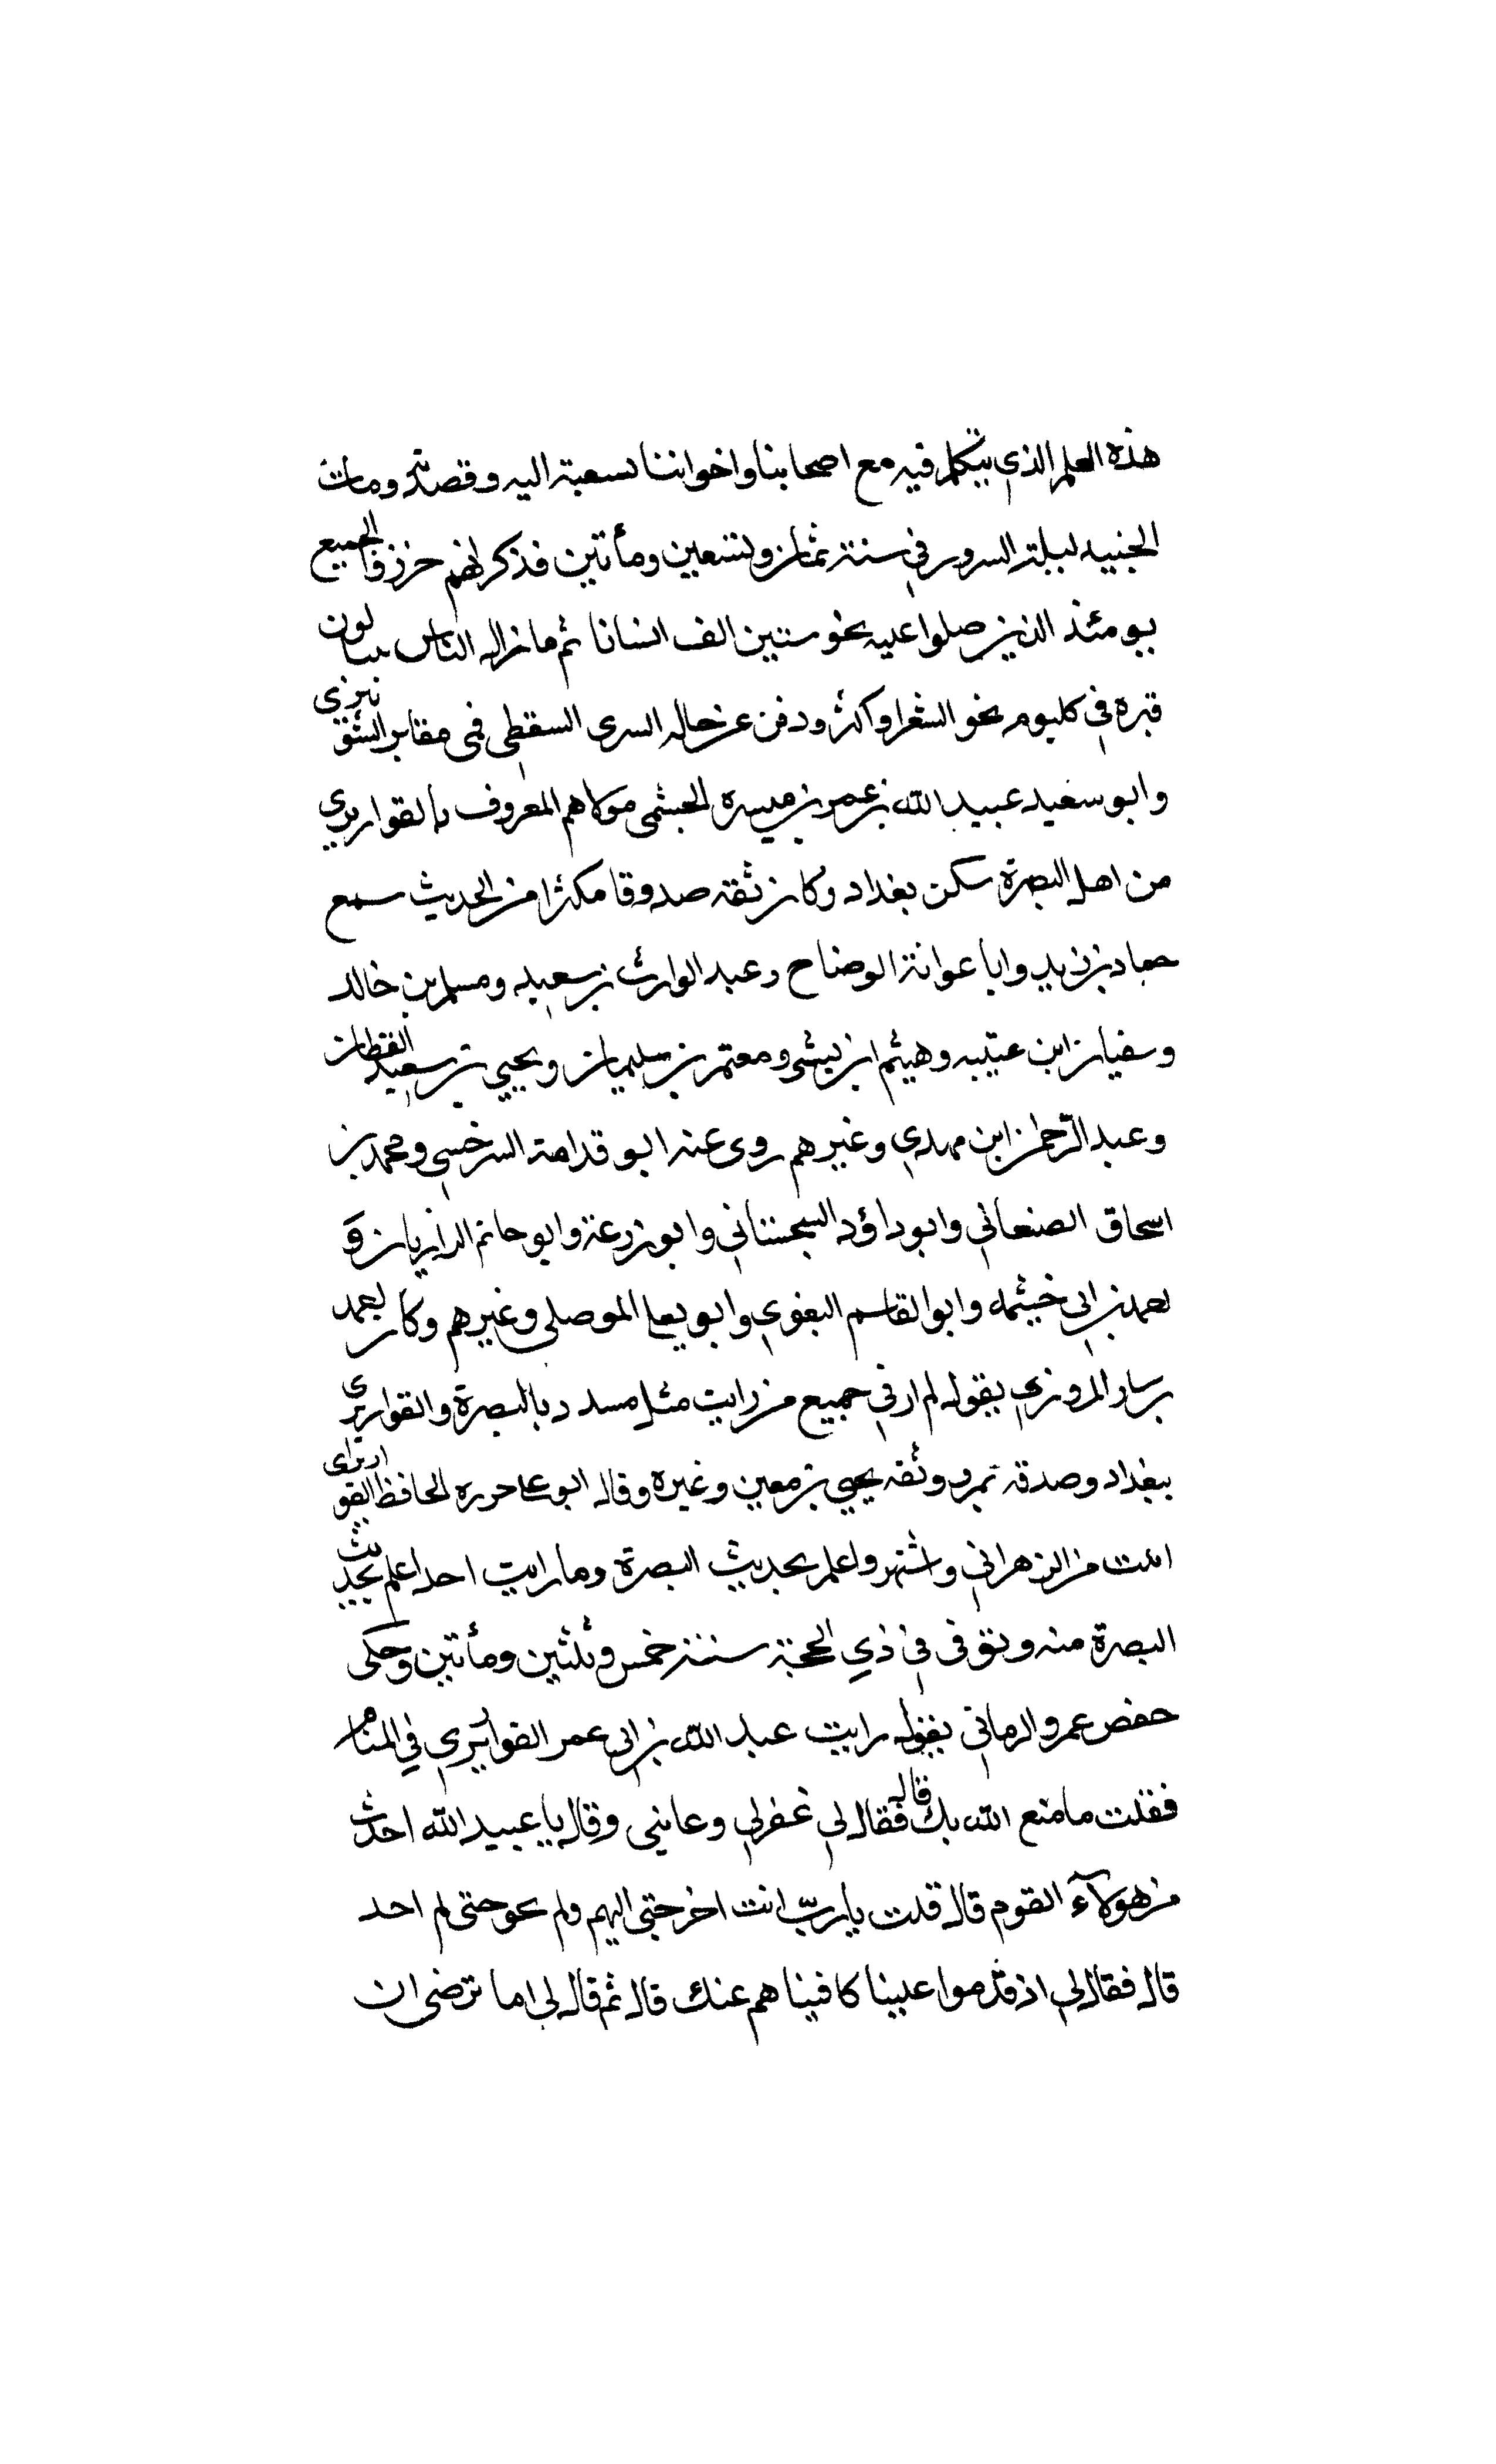 هذه العلم الذي يتكلم فيه مع اصحابنا واخواننا لسعيته اليه وقصدته ومات
الجنيد ليلة السرور في سنة ثمان وتسعين ومأتين فذكر انهم حزز والجميع
يومئذ الذين صلوا عليه نحو ستين الف انسانا ثم ما زال الناس يسالون
قبره في كليوم نحو الشغرا واكثر ودفن عن خاله السرى السقطي في مقابر الشونيزي
وابو سعيد عبيد الله بن عمر بن ميسرة الجشمى مولاهم المعروف بالقواريري
من اهل البصرة سكن بغداد وكان ثقة صدوقا مكثرا من الحديث سمع
حماد بن زيد وابا عوانة الوضاح وعبد الوارث بن سعيد ومسلم بن خالد
وسفيان ابن عيينه وهيثم ابن بيشى ومعتمر بن سليمان ويحيي بن سعيد القطان
وعبد الرحمن ابن مهدي وغيرهم روى عنه ابو قدامة السرخسي ومحمد بن
اسحاق الصنعاني وابو داؤد السجستاني وابو زرعة وابو حاتم الرازيان و
احمد بن ابي خيثمه وابو القاسم البغوي وابو يعلي الموصلي وغيرهم وكان احمد
بن سيار المروزي يقول لم ار في جميع من رايت مثل مسدد بالبصرة والقواريري
ببغداد وصدقة بمرو وثقه يحيي بن معين وغيره وقال ابو علي حرره الحافظ القواريرى
اثبت من الزهراني واشهر واعلم بحديث البصرة وما رايت احد اعلم بحديث
البصرة منه وتوفى في ذي الحجة سنة خمس وثلثين ومأتين وحكى
حفص عمرو الرماني يقول رايت عبد الله بن ابي عمر القواريري في المنام
فقلت ما منع الله بك قال فقال لي غفر لي وعاتبني وقال يا عبيد الله احدث
من هولاء القوم قال قلت يا رب انت اخرجتني اليهم ولم حتى لم احد
قال فقال لي اذ قدموا علينا كافيناهم عنك قال ثم قال لي اما ترضى ان